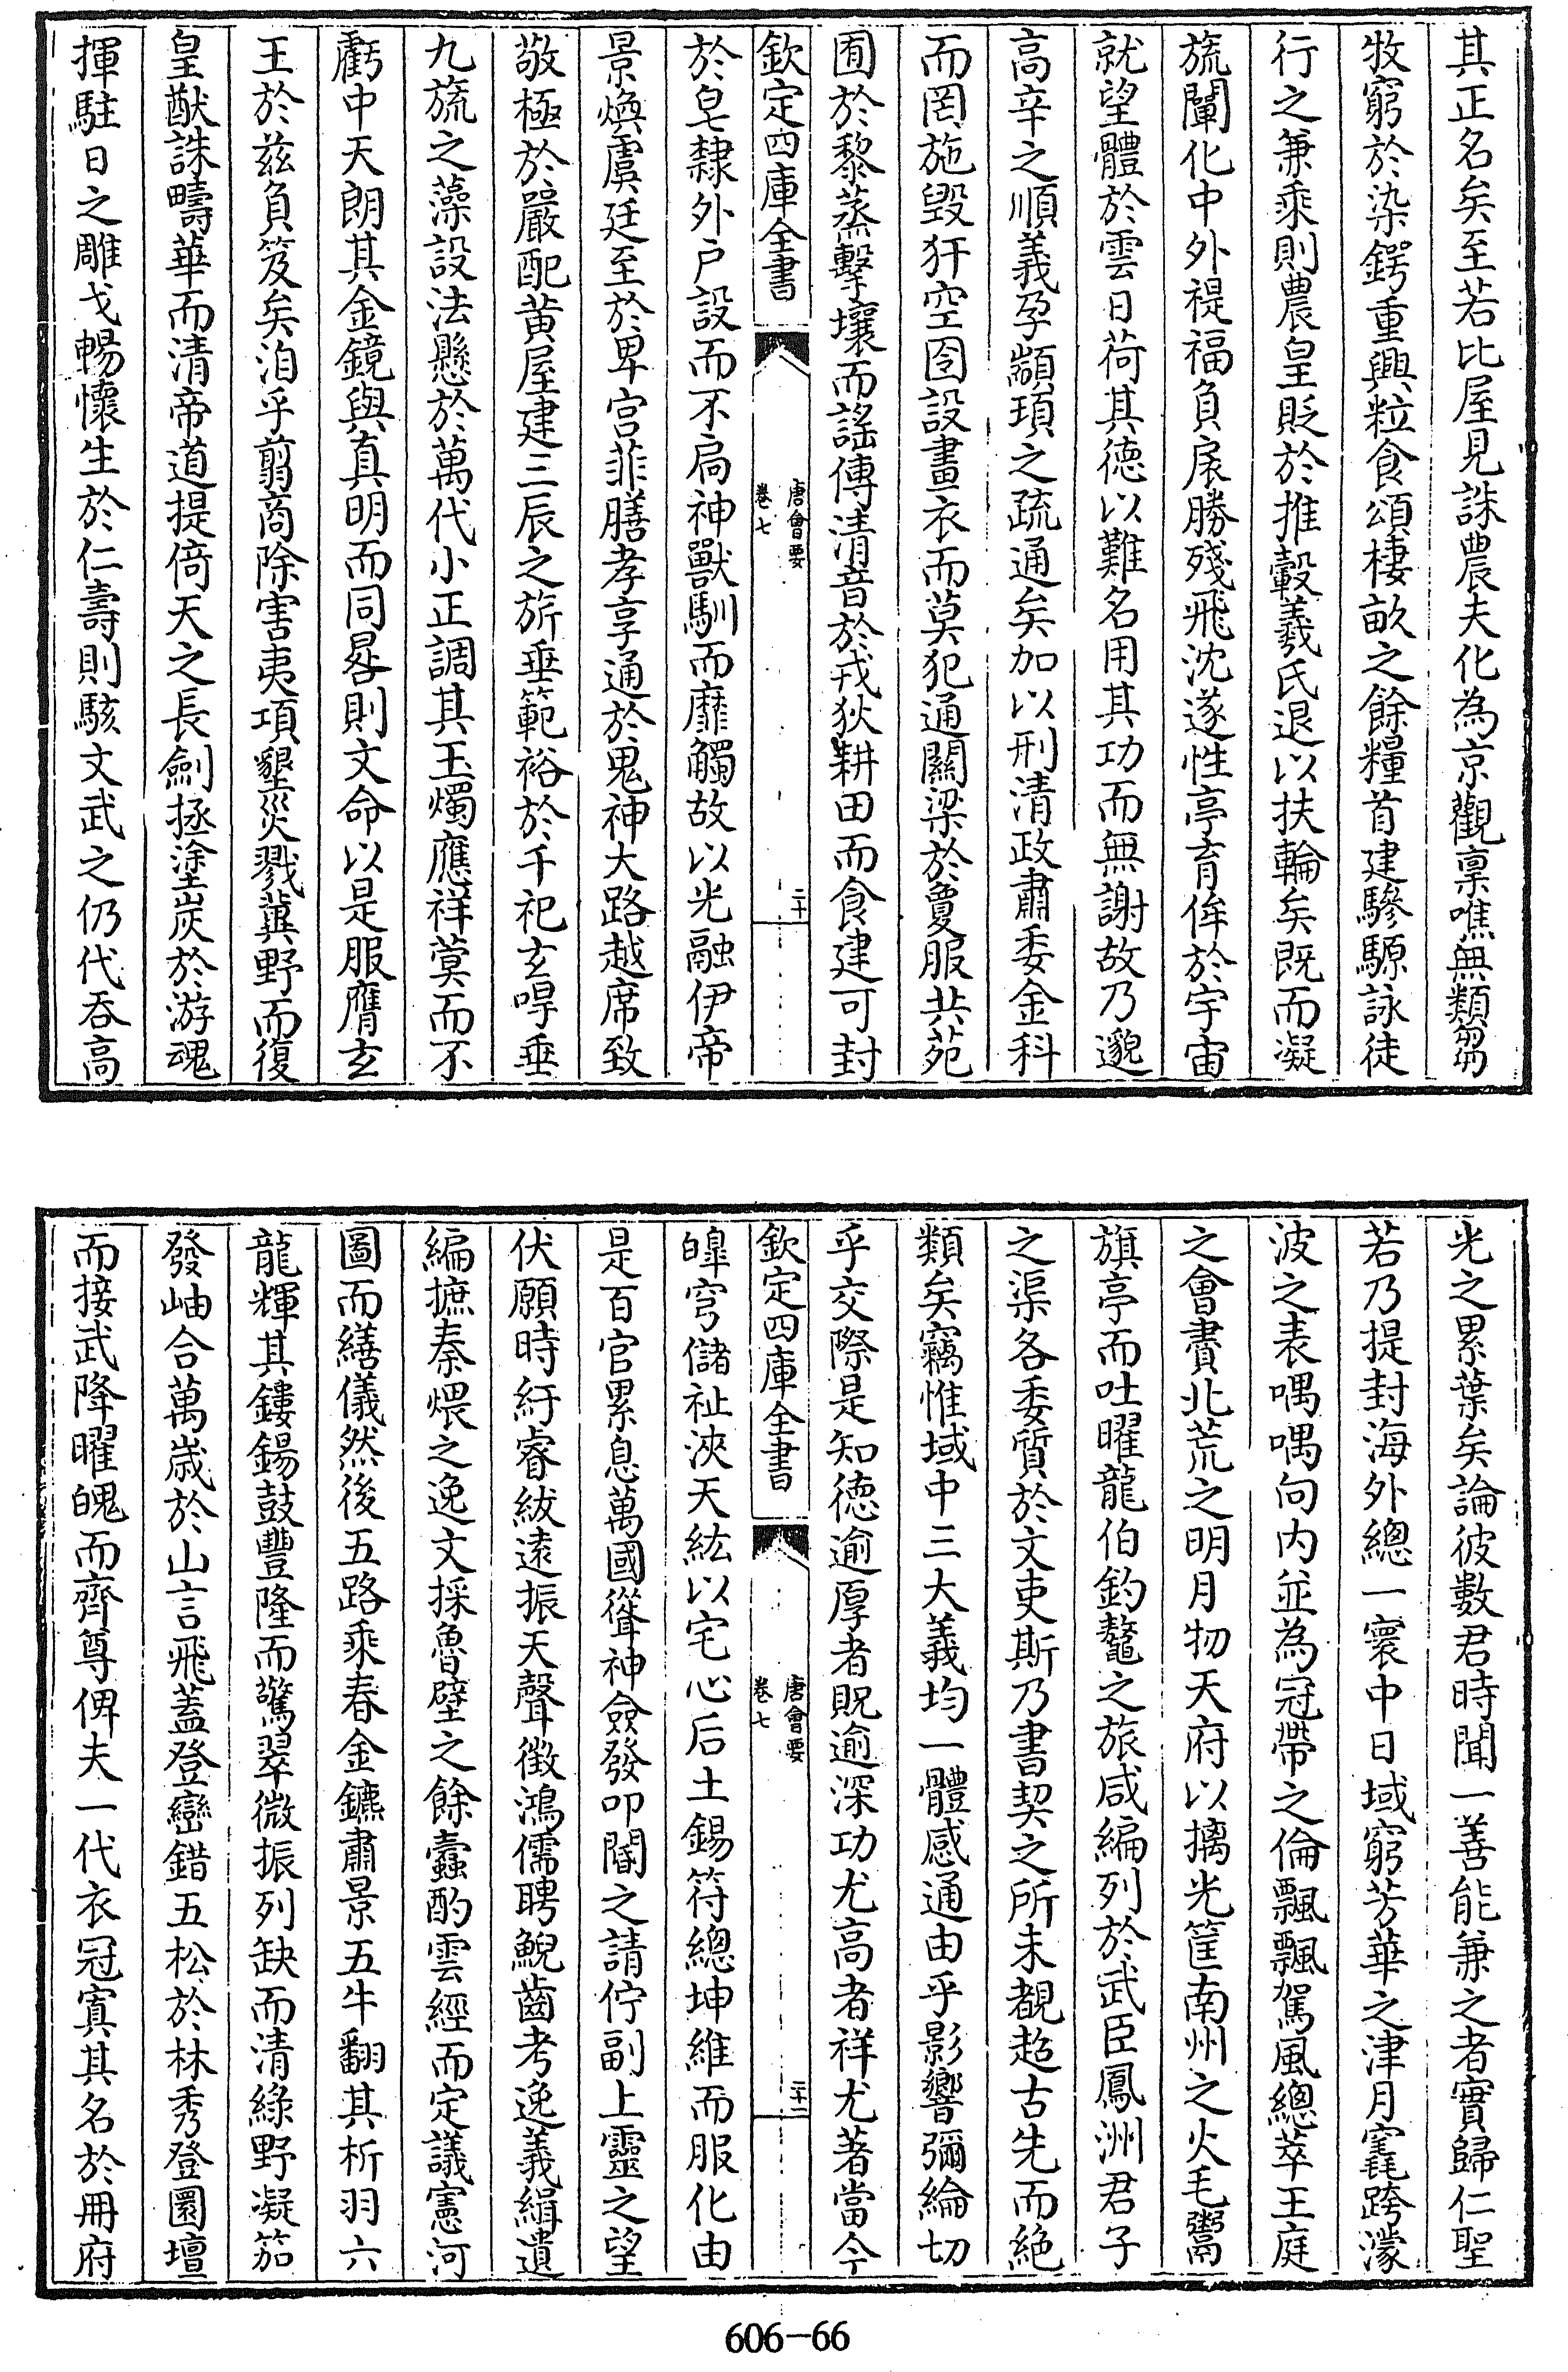 其正名矣至若比屋見誅農夫化為京觀稟噍無類芻
牧窮於染鍔重興粒食頌棲畝之餘糧首建驂騵詠徒
行之兼乘則農皇貶於推轂羲氏退以扶輪矣既而凝
旒闡化中外禔福負扆勝殘飛沈遂性亭育侔於宇宙
就望體於雲日荷其德以難名用其功而無謝故乃邈
高辛之順義孕顓頊之疏通矣加以刑清政肅委金科
而罔施毀犴空囹設畫衣而莫犯通關梁於夐服共苑
囿於黎蒸擊壤而謠傳清音於戎狄耕田而食建可封
欽定四庫全書
唐會要
卷七
二十
於皂隸外戶設而不扃神獸馴而靡觸故以光融伊帝
景煥虞廷至於卑宮菲膳孝享通於鬼神大路越席致
敬極於嚴配黄屋建三辰之旂垂範裕於千祀玄㝵垂
九旒之藻設法懸於萬代小正調其玉燭應祥蓂而不
虧中天朗其金鏡與真明而同晷則文命以是服膺玄
王於兹負笈矣洎乎翦商除害夷項墾災戮冀野而復
皇猷誅疇華而清帝道提倚天之長劍拯塗炭於游魂
揮駐日之雕戈暢懷生於仁壽則駭文武之仍代吞高
光之累葉矣論彼數君時聞一善能兼之者實歸仁聖
若乃提封海外總一寰中日域窮芳華之津月窟跨濛
波之表喁喁向内並為冠帶之倫飄飄駕風總萃王庭
之會賮北荒之明月牣天府以摛光筐南州之火毛鬻
旗亭而吐曜龍伯釣鼇之旅咸編列於武臣鳳洲君子
之渠各委質於文吏斯乃書契之所未覩超古先而絶
類矣竊惟域中三大義均一體感通由乎影響彌綸切
乎交際是知德逾厚者貺逾深功尤高者祥尤著當今
欽定四庫全書
唐會要
卷七
二十一
皥穹儲祉浹天紘以宅心后土錫符總坤維而服化由
是百官累息萬國聳神僉發叩閽之請佇副上靈之望
伏願時紆睿紱遠振天聲徵鴻儒聘鯢齒考逸義緝遺
編摭秦煨之逸文採魯壁之餘蠹酌雲經而定議憲河
圖而繕儀然後五路乘春金鑣肅景五牛翻其析羽六
龍輝其鏤鍚鼓豐隆而驚翠微振列缺而清綠野凝笳
發岫合萬歲於山言飛蓋登巒錯五松於林秀登圜壇
而接武降曜魄而齊尊俾夫一代衣冠寘其名於冊府
606－66